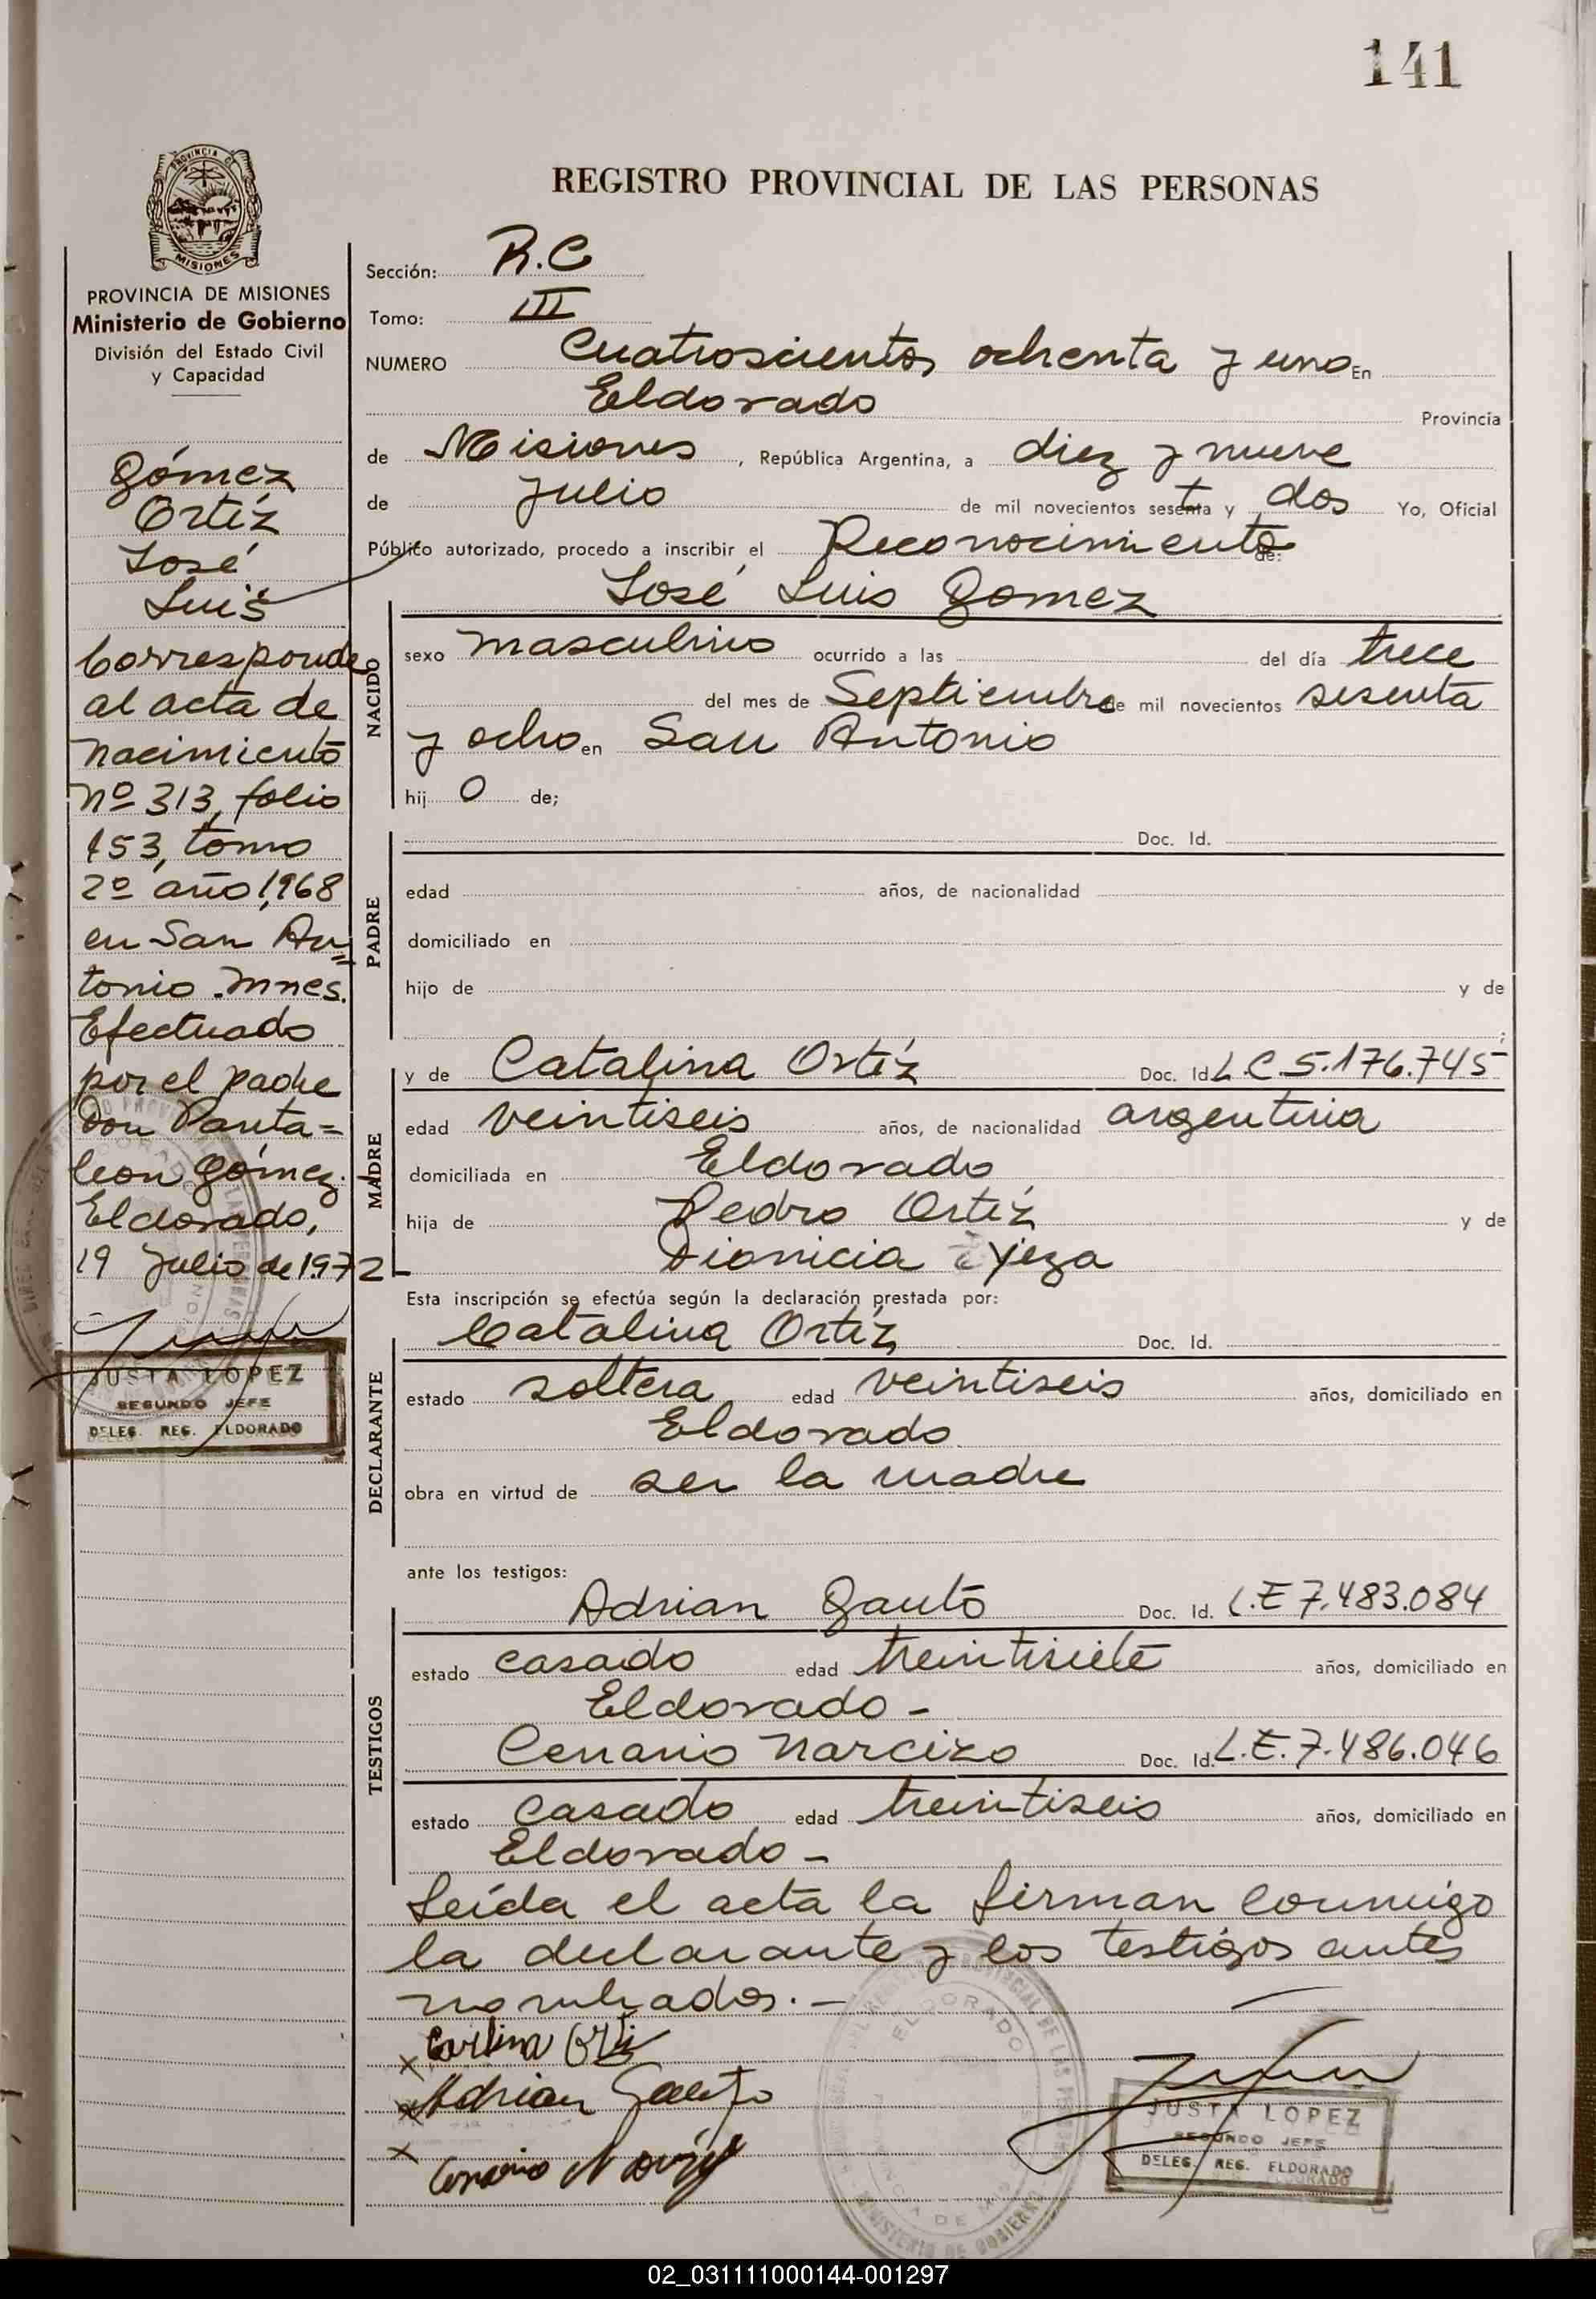 141
REGISTRO PROVINCIAL DE LAS PERSONAS
PROVINCIA DE MISIONES
Ministerio de Gobierno
División del Estado Civil
y Capacidad
Gómez
Ortíz
José
Luis
Corresponde
al acta de
nacimiento
Nº 313, folio
153, tomo
2º año 1,968
en San An=
tonio. Mnes.
Efectuado
por el padre
Don Panta=
leon Gómez.
Eldorado,
19 Julio de 1972
JUSTA LOPEZ
SEGUNDO JEFE
DELEG. REG. ELDORADO
Sección: R.C
Tomo: III
NUMERO Cuatroscientos ochenta y uno En
Eldorado Provincia
de Misiones, República Argentina, a diez y nueve
de Julio de mil novecientos sesenta y dos Yo, Oficial
Público autorizado, procedo a inscribir el Reconocimiento de:
José Luis Gomez
NACIDO
sexo masculino ocurrido a las del día trece
del mes de Septiembre de mil novecientos sesenta
y ocho en San Antonio
hij o de;
PADRE
Doc. Id.
edad años, de nacionalidad
domiciliado en
hijo de y de
MADRE
y de Catalina Ortíz Doc. Id L.C.5.176.745
edad veintiseis años, de nacionalidad argentina
domiciliada en Eldorado
hija de Pedro Ortíz y de
Dionicia
Esta inscripción se efectúa según la declaración prestada por:
DECLARANTE
Catalina Ortíz Doc. Id.
estado soltera edad veintiseis años, domiciliado en
Eldorado
obra en virtud de ser la madre
ante los testigos:
TESTIGOS
Adrian Gauto Doc. Id. L.E 7.483.084
estado casado edad treintisiete años, domiciliado en
Eldorado -
Cenario Narcizo Doc. Id. L.E.7.486.046
estado casado edad treintiseis años, domiciliado en
Eldorado -
Leída el acta la firman conmigo
la declarante y los testigos antes
nombrados. -
Adrian Gauto
JUSTA LOPEZ
SEGUNDO JEFE
DELEG. REG. ELDORADO
02_031111000144-001297